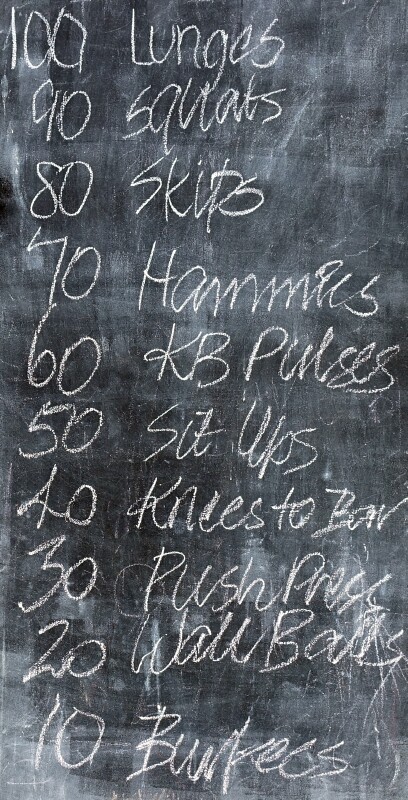 100 Lunges
90 Squats
80 Skips
70 Hammies
60 KB Pulses
50 Sit Ups
40 Knees to Bar
30 Push Press
20 Wall Balls
10 Burpees